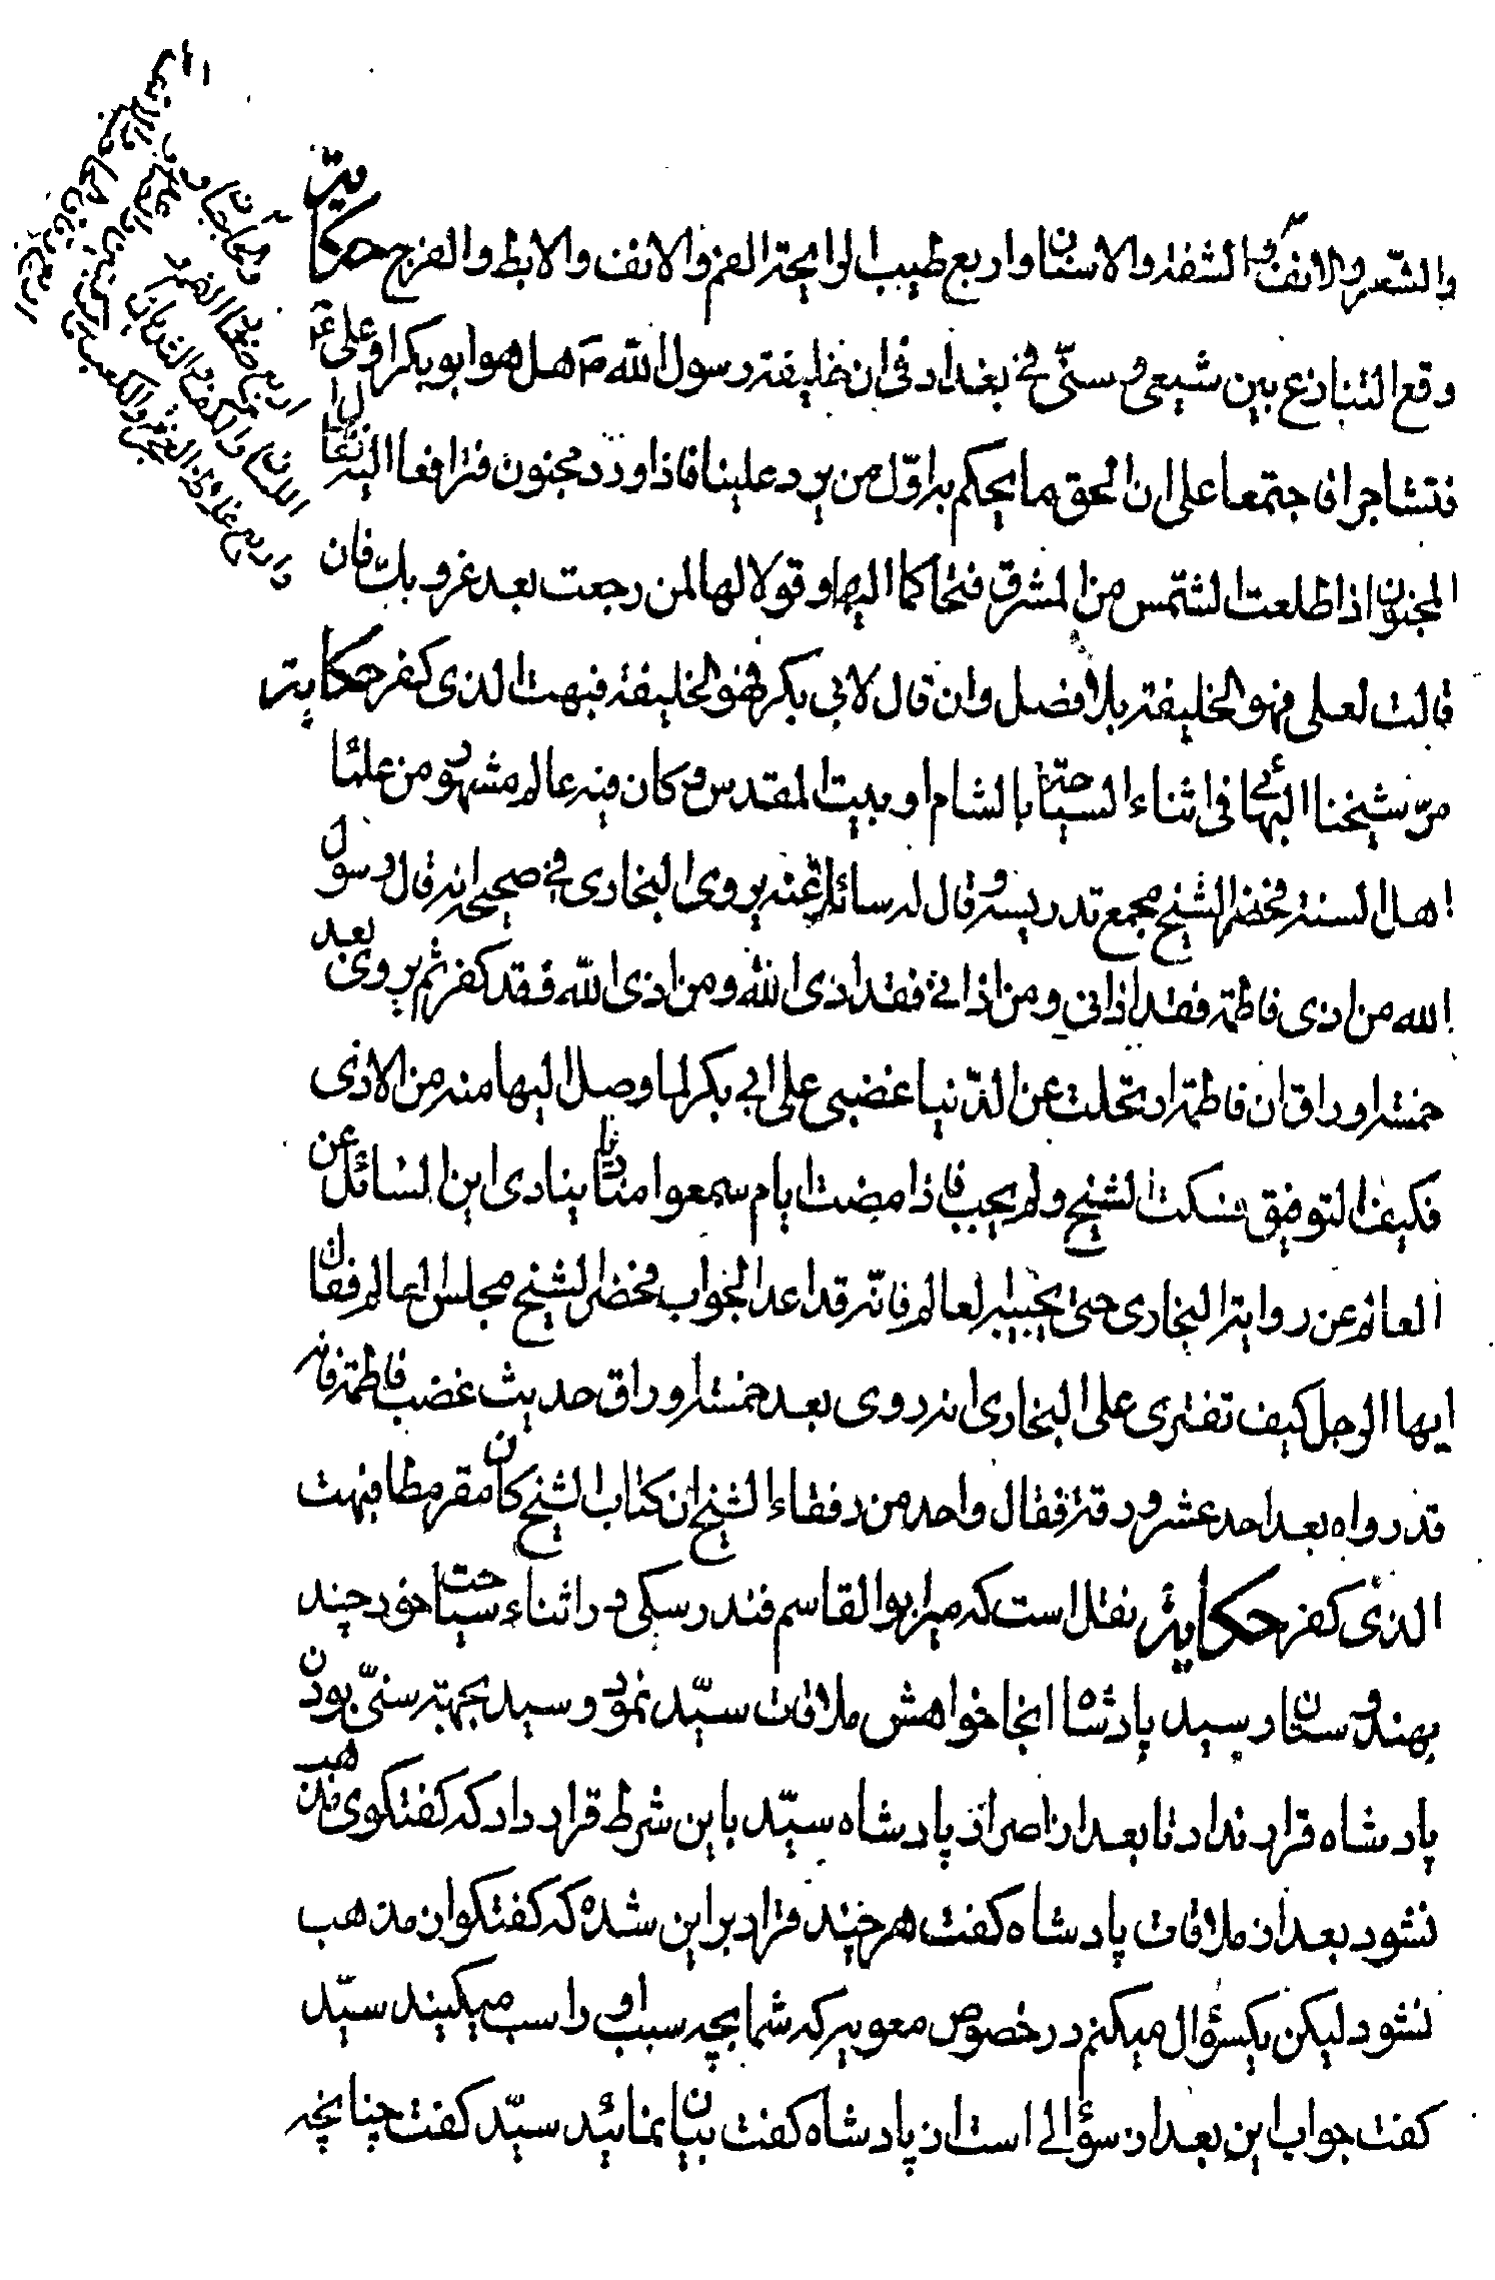 والشعر والانف والشفة والاسنان واربع طيب الرايحة الفم والانف والابط والفرج حكاية
وقع التنازع بين شيعى و سنّى فى بغداد فى ان خليفة رسول الله ص هل هو ابو بكر او على ع
فتشاجرا فاجتمعا على ان الحق ما يحكم به اوّل من يرد علينا فاذا ورد مجنون فترافعا اليه فقال
المجنون اذا طلعت الشمس من المشرق فتحاكما اليها وقولا لها لمن رجعت بعد غروبك فان
قالت لعلى فهو الخليفة بلا فصل وان قال لابى بكر فهو الخليفة فبهت الذى كفر حكاية
مرّ شيخنا البهائى فى اثناء السياحة بالشام او بيت المقدس و كان فيه عالم مشهور من علماء
اهل السنة فحضر الشيخ مجمع تدريسه و قال له سائلا عنه يروى البخارى فى صحيحه انه قال رسول
الله من اذى فاطمة فقد اذانى ومن اذانى فقد اذى الله ومن اذى الله فقد كفر ثم يروى بعد
خمسة اوراق ان فاطمة ارتحلت عن الدّنيا غضبى على ابى بكر لما وصل اليها منه من الاذى
فكيف التوفيق فسكت الشيخ ولم يجب فاذا مضت ايام سمعوا مناديا ينادى اين السائل عن
العالم عن رواية البخارى حتى يجيبه العالم فانّه قد اعد الجواب فحضر الشيخ مجلس العالم فقال
ايها الرجل كيف تفترى على البخارى انه روى بعد خمسة اوراق حديث غضب فاطمة فانه
قد رواه بعد احد عشر ورقة فقال واحد من رفقاء الشيخ ان كتاب الشيخ كان مقرمطا فبهت
الذى كفر حكاية نقل است كه ميرابوالقاسم فندرسكى در اثناء سياحت خود چند
بهندوستان رسيد پادشاه انجا خواهش ملاقات سيّد نمود و سيد بجهته سنّى بودن
پادشاه قرار نداد تا بعد از اصرار پادشاه سيّد باين شرط قرار داد كه كفتكوى مذهب
نشود بعد از ملاقات پادشاه كفت هرچند قرار براين شده كه كفتكو از مذهب
نشود ليكن يكسؤال ميكنم در خصوص معويه كه شما بچه سبب او را سب ميكنيد سيّد
كفت جواب اين بعد از سؤالى است از پادشاه كفت بيان نمائيد سيّد كفت چنانچه